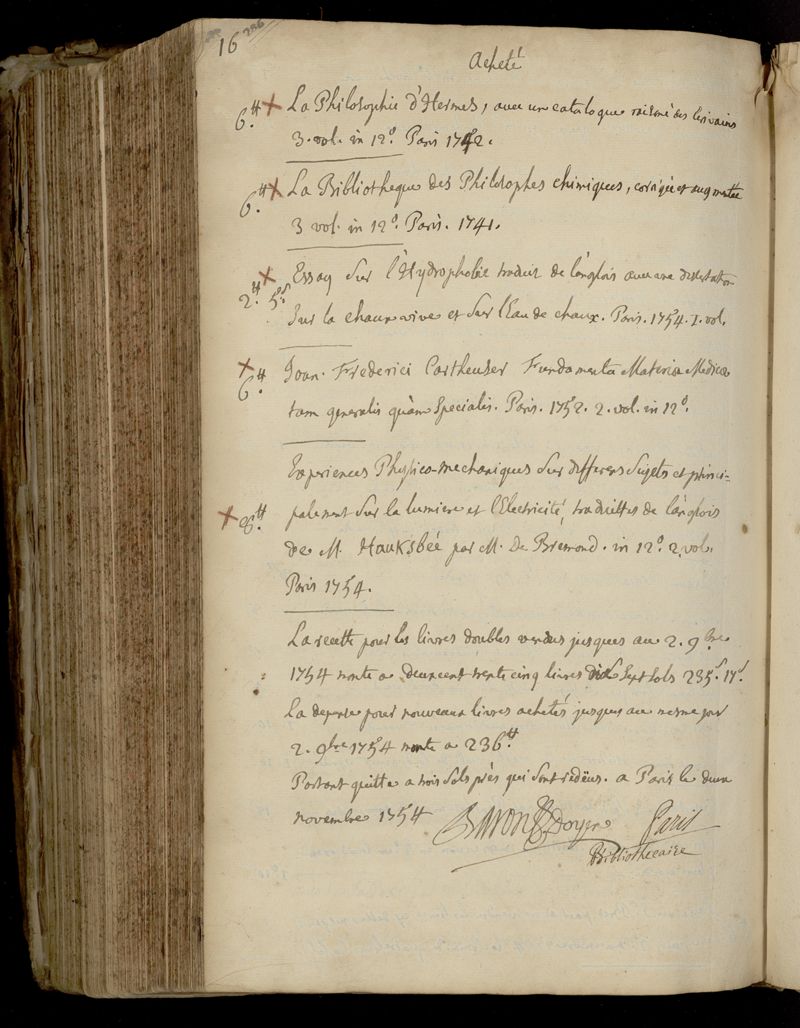 16 286
Acheté
6.# x La Philosophie d'Hermes, avec un catalogue raisonné des Ecrivains
3. vol. in 12.o Paris 1742.
6.# x La Bibliotheque des Philosophes chimiques, corrigée et augmentée
3 vol. in 12o. Paris. 1741.
x 2.# 5.s Essay sur l'Hydrophobie traduit de l'anglois avec une dissertation
sur la chaux vive et sur l'Eau de chaux. Paris. 1754. 1. vol.
x 6.# Joan. Frederici Cartheuser Fundamenta Materiæ Medicæ
tam generalis quàm specialis. Paris. 1752. 2. vol. in 12o.
Experiences Physico-mechaniques sur differens sujets et princi-
x palement sur la lumiere et l'Electricité, traduittes de l'anglois
de M. Hauksbée par M. De Bremond. in 12o. 2. vol.
Paris 1754.
La recette pour les livres doubles vendus jusques au 2. 9bre
1754 monte a deux cent trente cinq livres dix sept sols 235.# 17.s
La depense pour nouveaux livres achetés jusques au mesme jour
2. 9bre 1754 monte a 236.#
Partant quitte a trois sols près qui sont redëus. a Paris le deux
novembre 1754 Baron Doyen Paris
Bibliothecaire